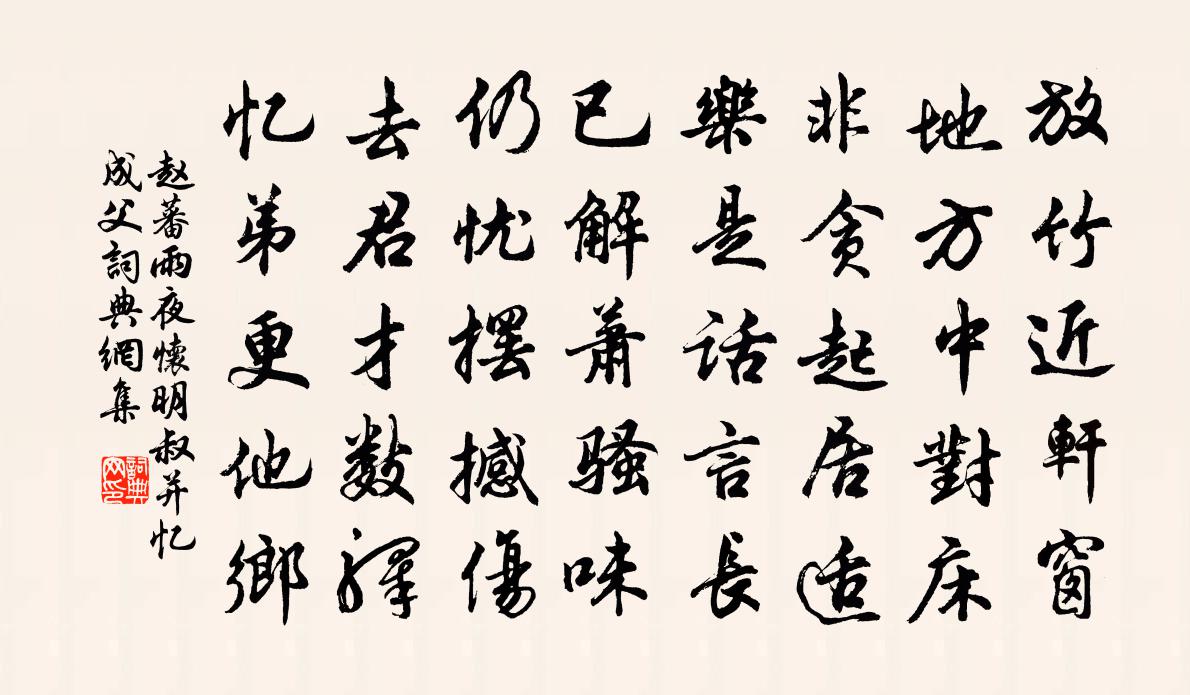 放竹近軒窗
地方中對床
非贪起居适
樂是话言長
已解萧骚味
仍忧摆撼傷
去君才数驿
忆弟更他鄉
赵蕃雨夜懷明叔并忆
成父詞典網集
詞典
网印